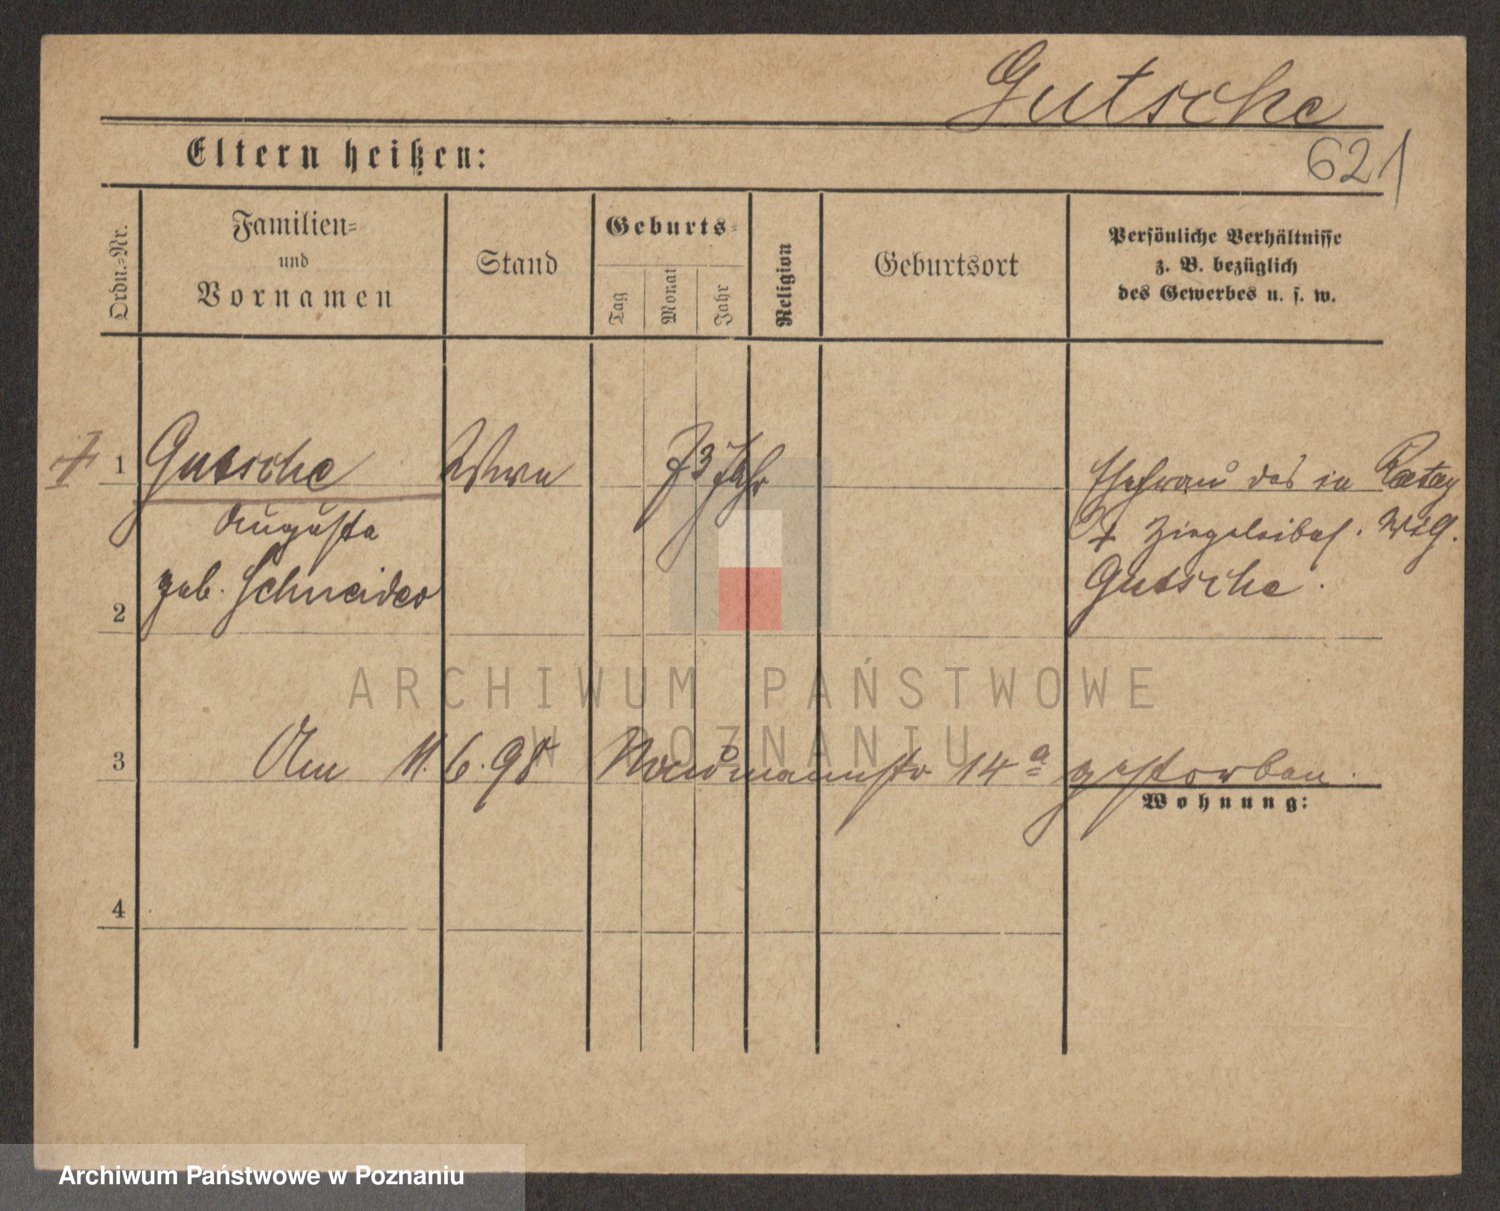 Gutsche
Eltern heißen:
621
Ordn.-Nr.
Familien-
und
Vornamen
Stand
Geburts-
Tag
Monat
Jahr
Religion
Geburtsort
Persönliche Verhältnisse
z. B. bezüglich
des Gewerbes u. s. w.
1 Gutsche Wwe 73 Jahr Ehefrau des in Rataj
Auguste † Ziegeleibes.
2 geb. Schneider Gutsche.
3 Am 11.6.98 Naumannstr 14a gestorben.
Wohnung:
4
ARCHIWUM PAŃSTWOWE
W POZNANIU
Archiwum Państwowe w Poznaniu